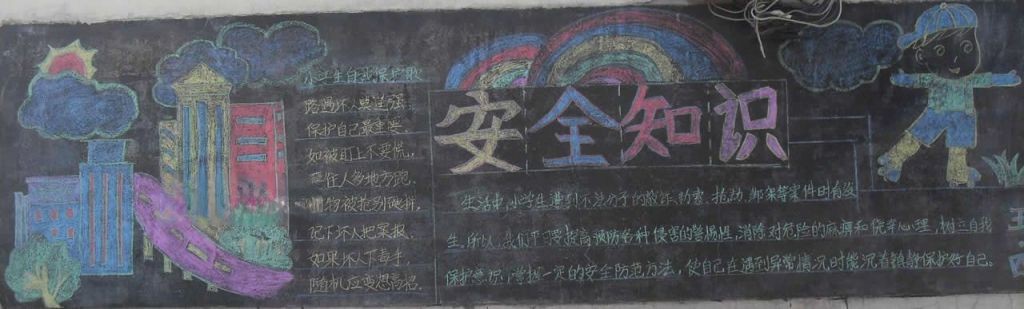 小学生自我保护歌
路遇坏人莫逞强,
保护自己最重要。
如被盯上不要慌,
往人多地方跑。
财物被抢别硬拼,
记下坏人把案报。
如果坏人下毒手,
随机应变想高招。
安全知识
生活中,小学生遭到不法分子的敲诈、勒索、抢劫、绑架等案件时有发
生,所以,我们平时要提高预防各种侵害的警惕性,消除对危险的麻痹和侥幸心理,树立自我
保护意识,掌握一定的安全防范方法,使自己在遇到异常情况时能沉着镇静保护好自己。